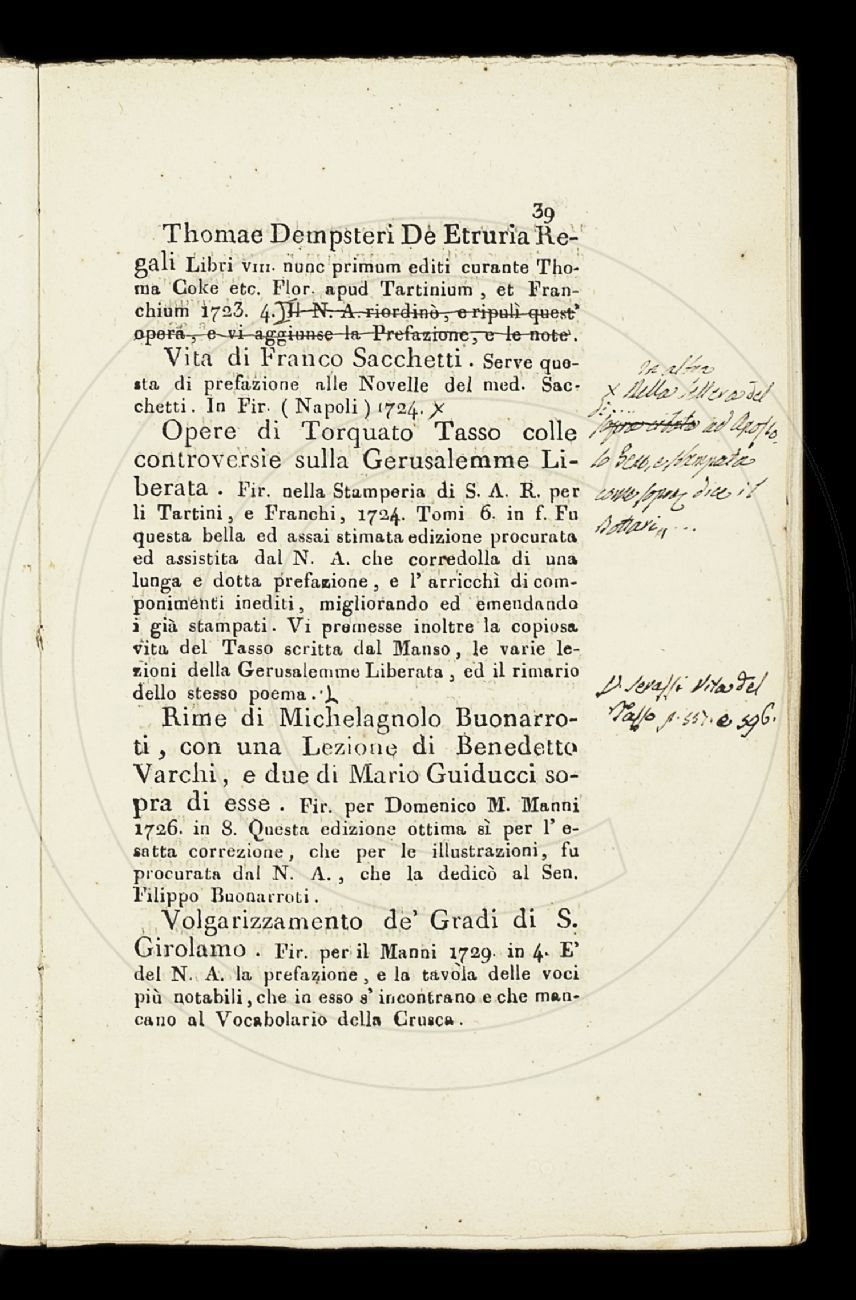 39
Thomae Dempsteri De Etruria Re-
gali Libri VIII. nunc primum editi curante Tho-
ma Coke etc. Flor. apud Tartinium, et Fran-
chium 1723. 4. Il N. A. riordinò, e ripulì quest'
opera, e vi aggiunse la Prefazione, e le note.
Vita di Franco Sacchetti. Serve que-
sta di prefazione alle Novelle del med. Sac-
chetti. In Fir. (Napoli) 1724. X
Opere di Torquato Tasso colle
controversie sulla Gerusalemme Li-
berata. Fir. nella Stamperia di S. A. R. per
li Tartini, e Franchi, 1724. Tomi 6. in f. Fu
questa bella ed assai stimata edizione procurata
ed assistita dal N. A. che corredolla di una
lunga e dotta prefazione, e l'arricchì di com-
ponimenti inediti, migliorando ed emendando
i già stampati. Vi premesse inoltre la copiosa
vita del Tasso scritta dal Manso, le varie le-
zioni della Gerusalemme Liberata, ed il rimario
dello stesso poema.
Rime di Michelagnolo Buonarro-
ti, con una Lezione di Benedetto
Varchi, e due di Mario Guiducci so-
pra di esse. Fir. per Domenico M. Manni
1726. in 8. Questa edizione ottima sì per l'e-
satta correzione, che per le illustrazioni, fu
procurata dal N. A., che la dedicò al Sen.
Filippo Buonarroti.
Volgarizzamento de' Gradi di S.
Girolamo. Fir. per il Manni 1729. in 4. E'
del N. A. la prefazione, e la tavola delle voci
più notabili, che in esso s'incontrano e che man-
cano al Vocabolario della Crusca.
in altra
X Nella lettera del
ad Aposto-
lo Zeno, e stampata
come sopra dice il
Bottari
V. Serassi Vita del
Tasso p. 557. e 596.